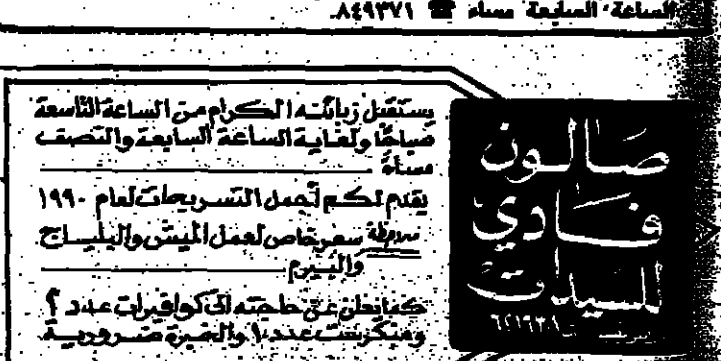 الساعة السابعة مساء ☎ ٨٤٩٣٧١.
صالون
فادي
للسيدات
يستقبل زبائنه الكرام من الساعة التاسعة
صباحًا ولغاية الساعة السابعة والنصف
مساءً
يقدم لكم أجمل التسريحات لعام ١٩٩٠
ملاحظة سعر خاص لعمل الميش والبليساج
والبيرم
كما يعلن عن حاجته الى كوافيرات عدد ٢
وميكرست عدد ١ والخبرة ضرورية